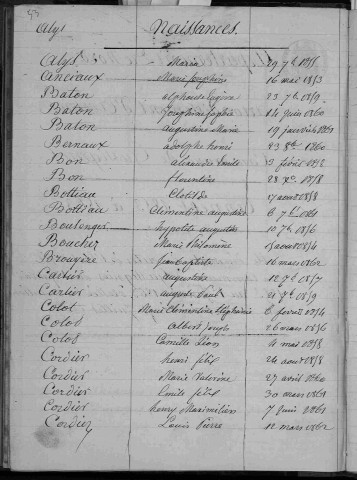 Alys Naissances.
Alys Maria 29 7bre 1855
Anciaux Marie Josephine 16 mai 1853
Baton alphonse Eugène 23 7bre 1859
Baton Josephine Sophie 14 juin 1860
Baton augustine Marie 19 janvier 1861
Bernaux adolphe henri 23 8bre 1860
Bon alexandre Emile 3 février 1852
Bon florentine 28 Xbre 1858
Bottiau Clotilde 17 août 1858
Bottiau Clémentine augustine 6 7bre 1861
Boulenger hyppolite augustin 10 7bre 1856
Boucher Marie Philomène août 1854
Brouyère jean baptiste 16 mars 1862
Cartier augustine 12 7bre 1857
Cartier auguste 21 7bre 1859
Colot Marie Clémentine Stéphanie 6 février 1854
Colot Albert Joseph 26 mars 1856
Colot Camille Léon 4 mai 1858
Cordier henri félix 24 août 1858
Cordier Marie Valerine 27 avril 1860
Cordier Emile félix 30 mars 1861
Cordier henry Maximilien 7 juin 1861
Cordier Louis Pierre 12 mars 1862